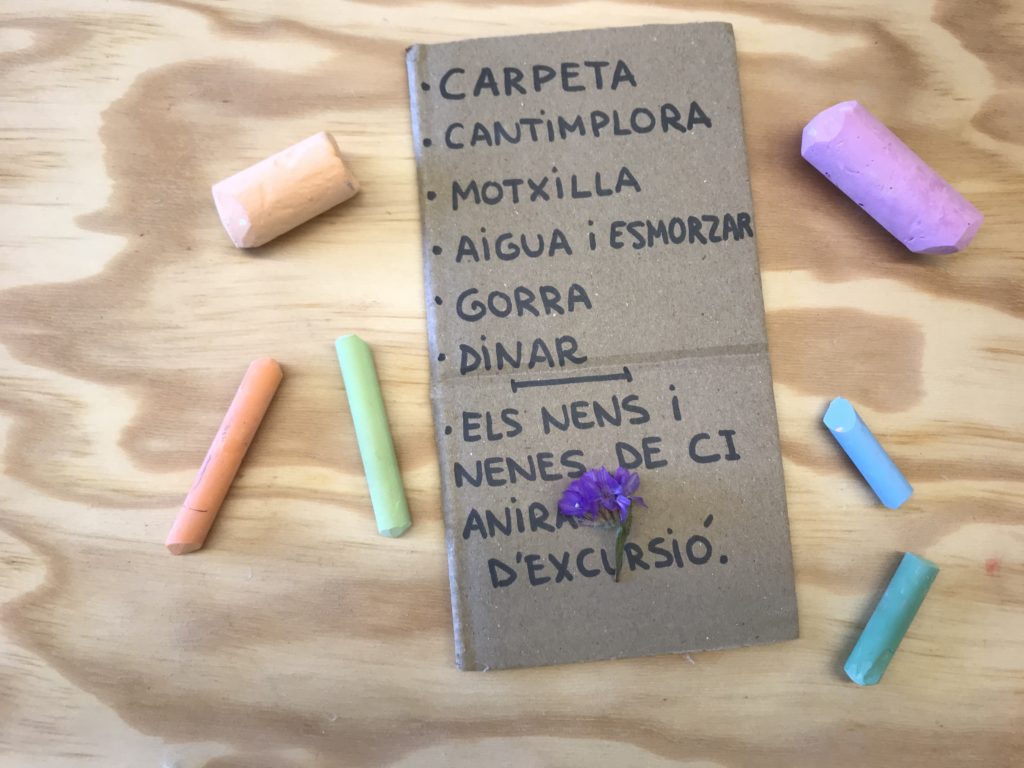 · CARPETA
· CANTIMPLORA
· MOTXILLA
· AIGUA I ESMORZAR
· GORRA
· DINAR
· ELS NENS I
NENES DE CI
D'EXCURSIÓ.